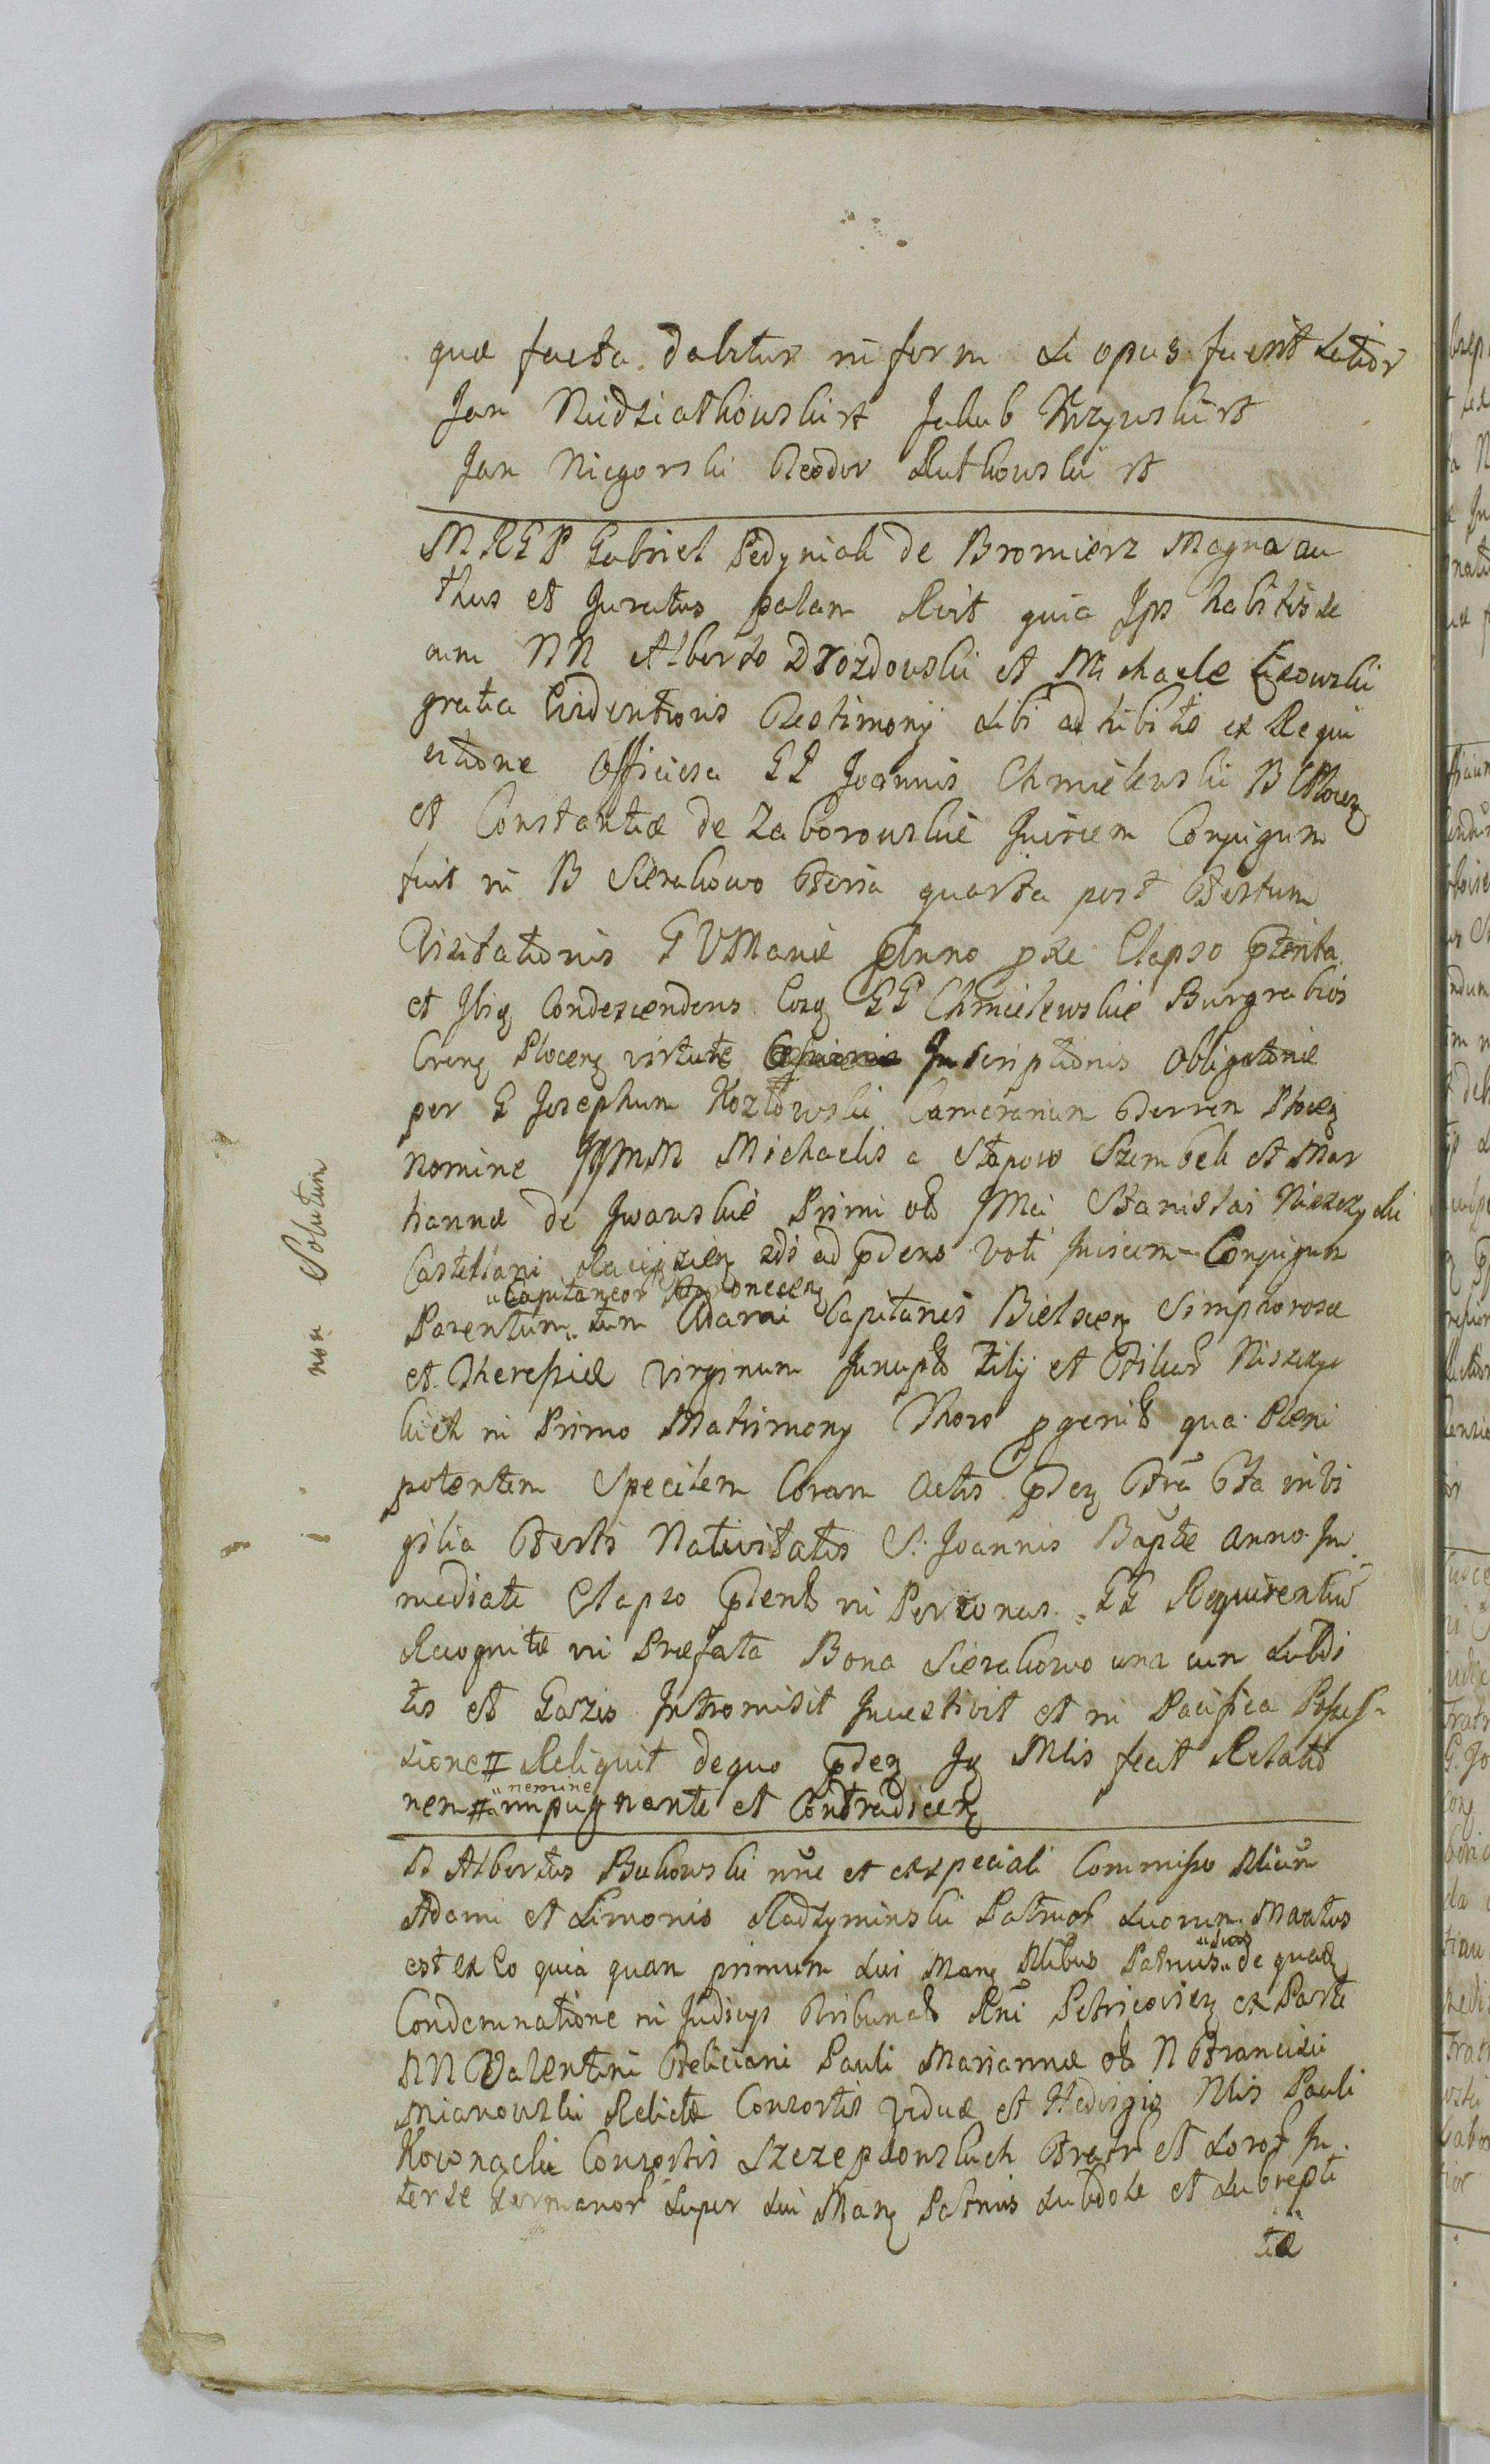 quæ facta dabitur in form si opus fuerit Latior
Jan Niedziałkowski rt Jakub Krzywski rt
Jan Niegorski Teodor Rutkowski rt
MRGP Gabriel Pedyniak de Bromierz Magna au
thus et Juratus palam Rvit quia Ips habitis se
cum NN Alberto Drozdowski et Michaele Lisowski
gratia Evidentioris Testimonij sibi adhibitis ex Requi
sitione Officiosa GG Joannis Chmielewski B Plocen
et Constantiæ de Zaborowskie Invicem Conjugum
fuit in B Sierakowo Feria quarta post Festum
Visitationis BVMariæ Anno pxe Elapso ptenta
et Ibiq Condescendens Eosq GG Chmielewskie Burgrabios
Crens Plocens virtute Inscriptionis Obligatoriæ
per G Josephum Kozłowski Camerarium Terren Plocen
nomine JJMM Michaelis a Słupow Szembek et Mar
hannæ de Jwanskie Primi olo JMci Stanislai Niszczycki
Castellani Raciązien 2di ad pdens voti Invicem Conjugum
"Capitaneor onecens
Parentum "tum Adami Capitanei Bielscen Simphorosæ
et Theressiæ virginum Innupto Filij et Filiar Niszczyc
kich in Primo Matrimony Thoro pgenito qua Pleni
potentem Specilem Coram Actis pden Fria 6ta in vi
gilia Festi Nativitatis S. Joannis Bapte anno Im
mediate Elapso ptento in Personas GG Requirentiu
Recognitæ in Præfata Bona Sierakowo una cum Subdi
tis et Gazis Intromisit Investivit et in Pacifica Posses
sione # Reliquit de quo pden Jq Mlis fecit Relatio
nem # "nemine impugnante et Contradicen
N Albertus Bukowski nne et ex speciali Commisso Nlium
Adami et Simonis Radzyminski Patruor Suorum Mantus
est ex Eo quia quam primum Sui Mang Nlibus Patruis "suos de quadq
Condemnatione in Judicijs Tribunalo Rni Petricovien ex Parte
NN Valentini Feliciani Pauli Mariannæ olo N Francisci
Mianowski Relictæ Consortis viduæ et Hedvigis Nlis Pauli
Kownacki Consortis Szczepkowskich Fratr et Soror In
ter se Germanor super Sui Mang Patruis Subdole et Subrepti
tiæ
non Solutum